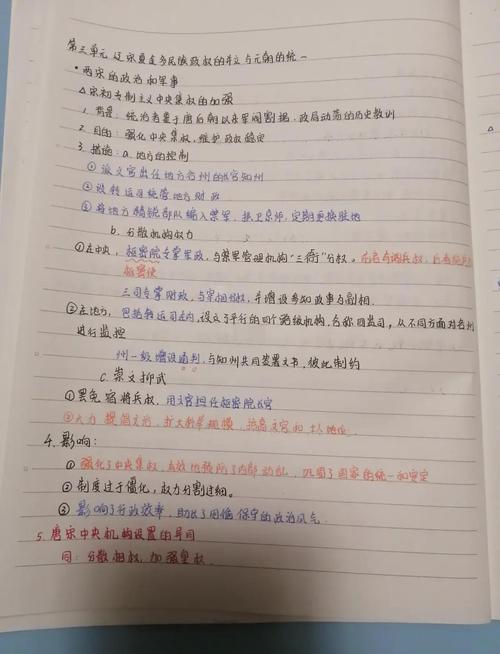 第三单元 辽宋夏金多民族政权的并立与元朝的统一
·两宋的政治和军事
△宋初专制主义中央集权的加强
1. 背景：统治者鉴于唐后期以来军阀割据，政局动荡的历史教训
2. 目的：强化中央集权，维护政权稳定
3. 措施：a. 地方的控制
①派文官出任地方各州的长官知州
②设转运司统管地方财政
③将地方精锐部队编入禁军，拱卫京师，定期更换驻地
b. 分散机构权力
①在中央，枢密院专掌军政，与禁军管理机构“三衙”分权。
枢密使
三司专掌财政，与宰相分权，并增设参知政事为副相
②在地方，包括转运司在内，设立了平行的四个路级机构，名称四监司，从不同方面对各州
进行监控
州一级增设通判，与知州共同签署文书，彼此制约
c. 崇文抑武
①罢免宿将兵权，用文官担任枢密院长官
②大力提倡文治，扩大科举规模，提高文官和士人地位
4. 影响：
①强化了中央集权，有效地预防了内部动乱，巩固了国家的统一和安定
②制度过于僵化，权力分割过细。
③影响了行政效率，助长了因循保守的政治风气
5. 唐宋中央机构设置的异同
同：分散相权，加强皇权